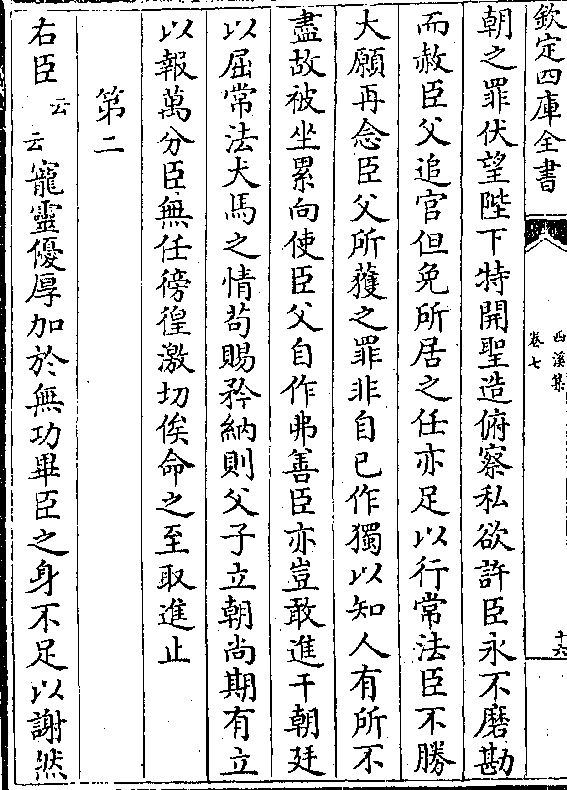 欽定四庫全書
西溪集
卷七
十六
朝之罪伏望陛下特開聖造俯察私欲許臣永不磨勘
而赦臣父追官但免所居之任亦足以行常法臣不勝
大願再念臣父所獲之罪非自已作獨以知人有所不
盡故被坐累向使臣父自作弗善臣亦豈敢進干朝廷
以屈常法犬馬之情茍賜矜納則父子立朝尚期有立
以報萬分臣無任徬徨激切俟命之至取進止
第二
右臣云云寵靈優厚加於無功畢臣之身不足以謝然